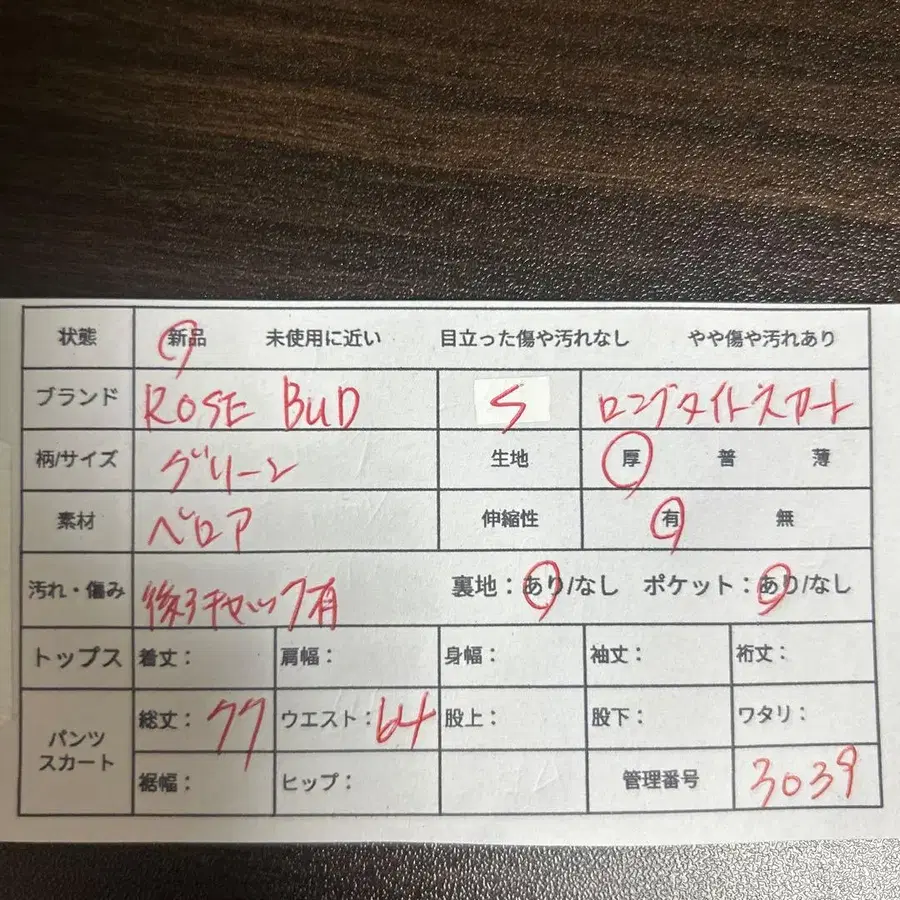 状態 新品 未使用に近い 目立った傷や汚れなし やや傷や汚れあり
ブランド ROSE BUD S ロングタイトスカート
柄/サイズ グリーン 生地 厚 普 薄
素材 ベロア 伸縮性 有 無
汚れ・傷み 後ろ 有 裏地：あり/なし ポケット：あり/なし
トップス 着丈： 肩幅： 身幅： 袖丈： 裄丈：
パンツ スカート 総丈：77 ウエスト：64 股上： 股下： ワタリ：
裾幅： ヒップ： 管理番号 3039